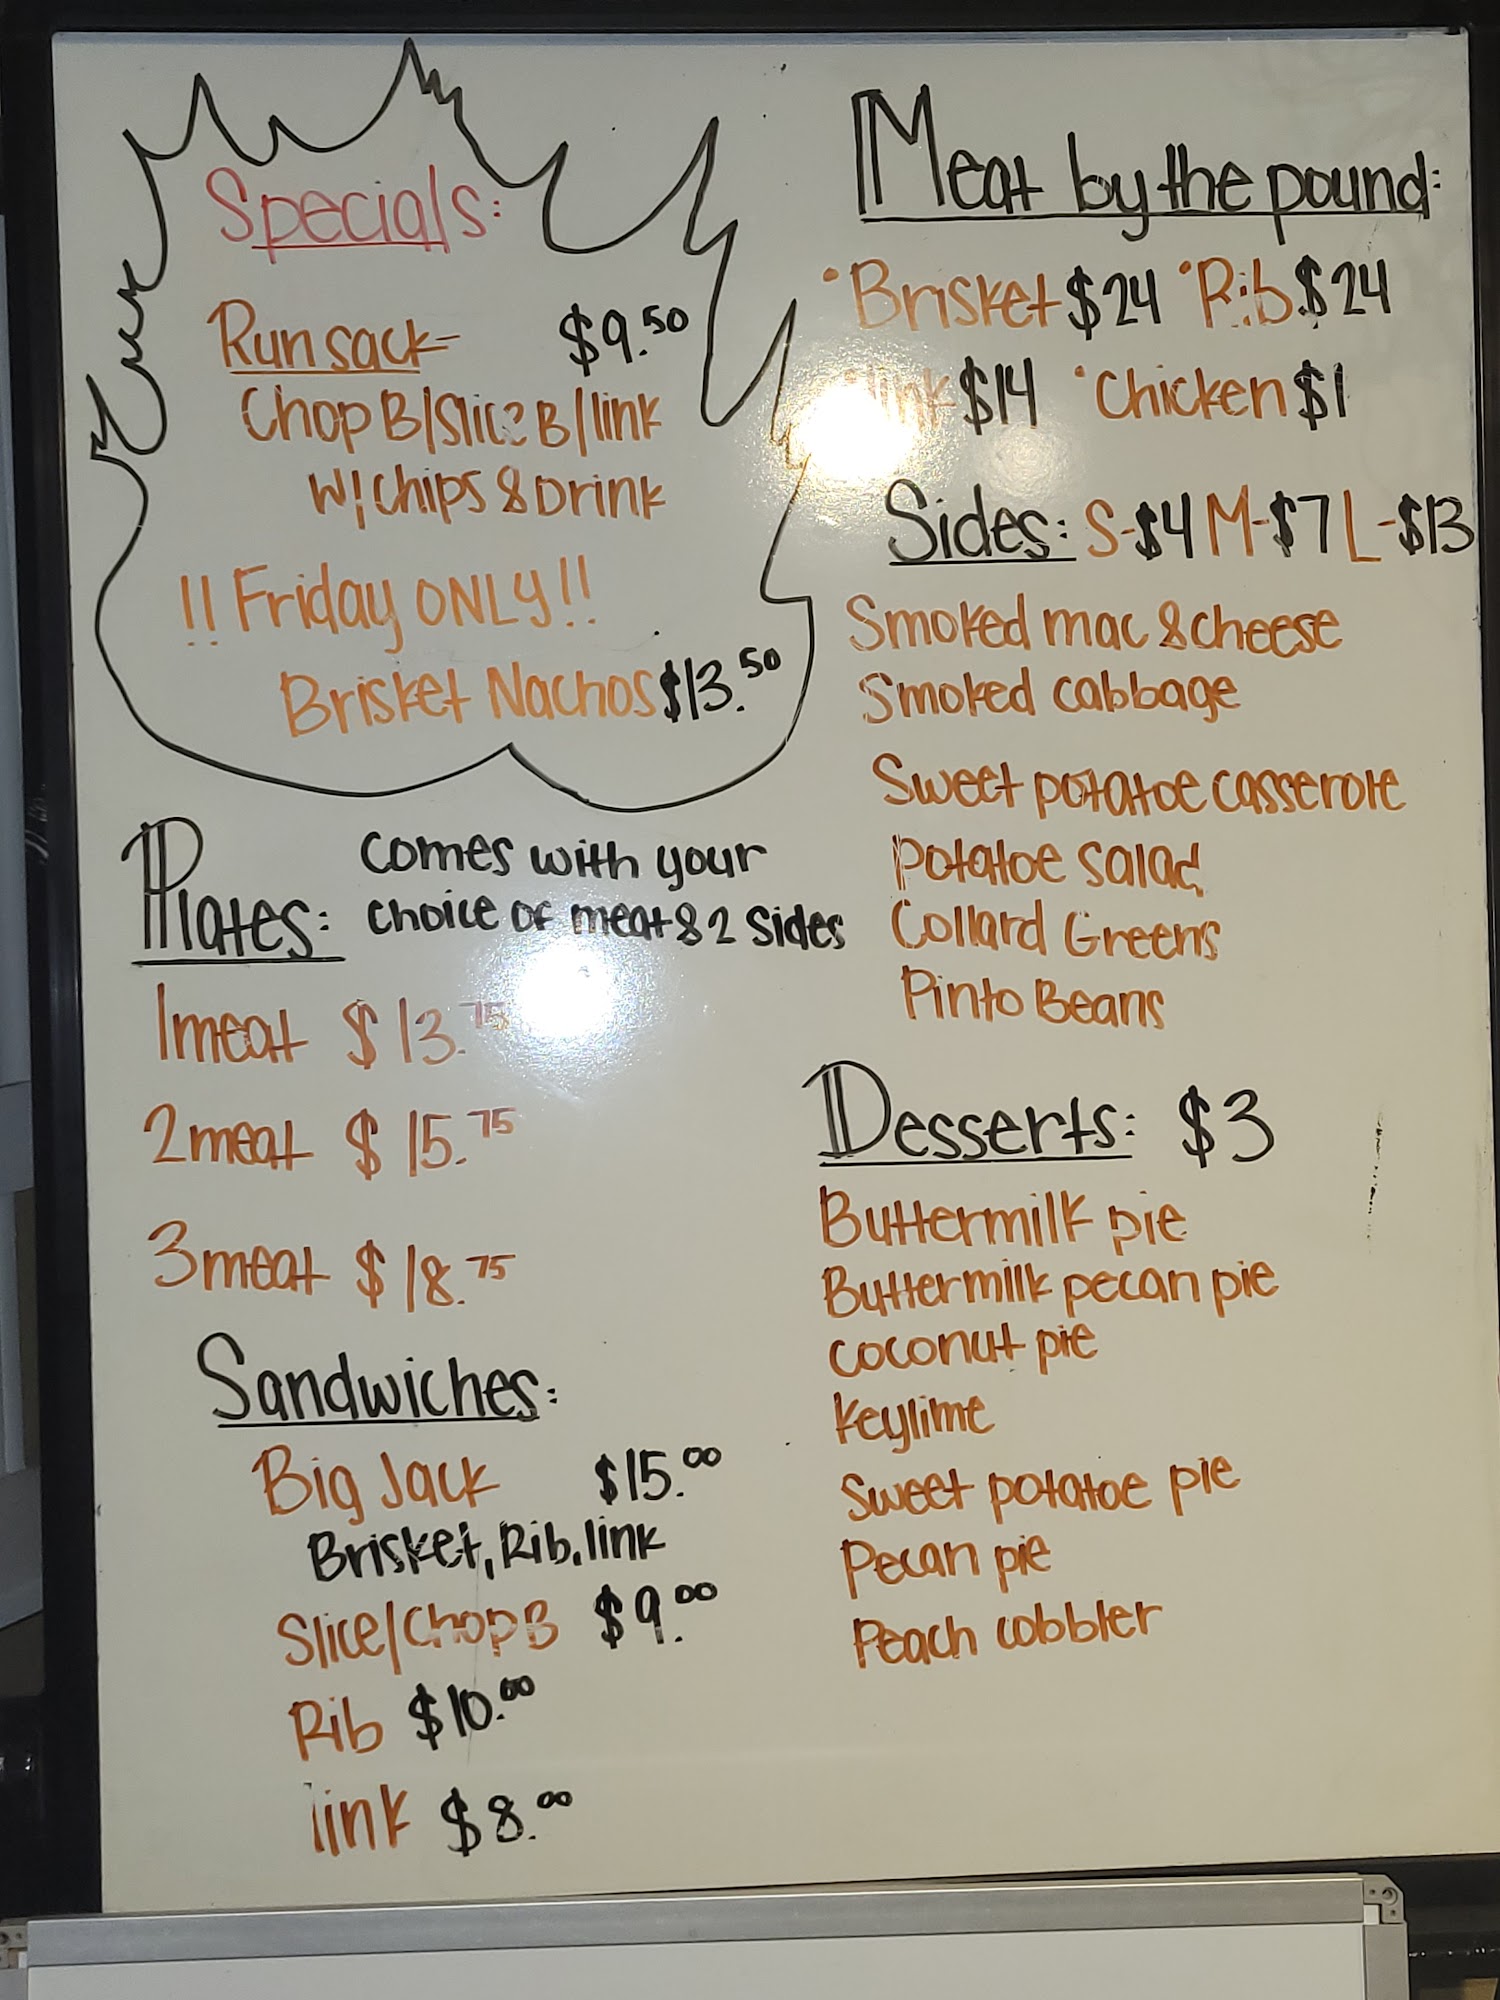 Specials:
Run sack- $9.50
Chop B/Slice B/link
w/chips & Drink
!! Friday ONLY!!
Brisket Nachos $13.50
Plates: comes with your
choice of meat & 2 sides
1 meat $13.75
2 meat $15.75
3 meat $18.75
Sandwiches:
Big Jack $15.00
Brisket, Rib, link
Slice/Chop B $9.00
Rib $10.00
link $8.00
Meat by the pound:
•Brisket $24 •Rib $24
•link $14 •Chicken $1
Sides: S-$4 M-$7 L-$13
Smoked mac & cheese
Smoked cabbage
Sweet potatoe casserole
Potatoe salad
Collard Greens
Pinto Beans
Desserts: $3
Buttermilk pie
Buttermilk pecan pie
coconut pie
Keylime
Sweet potatoe pie
Pecan pie
Peach cobbler